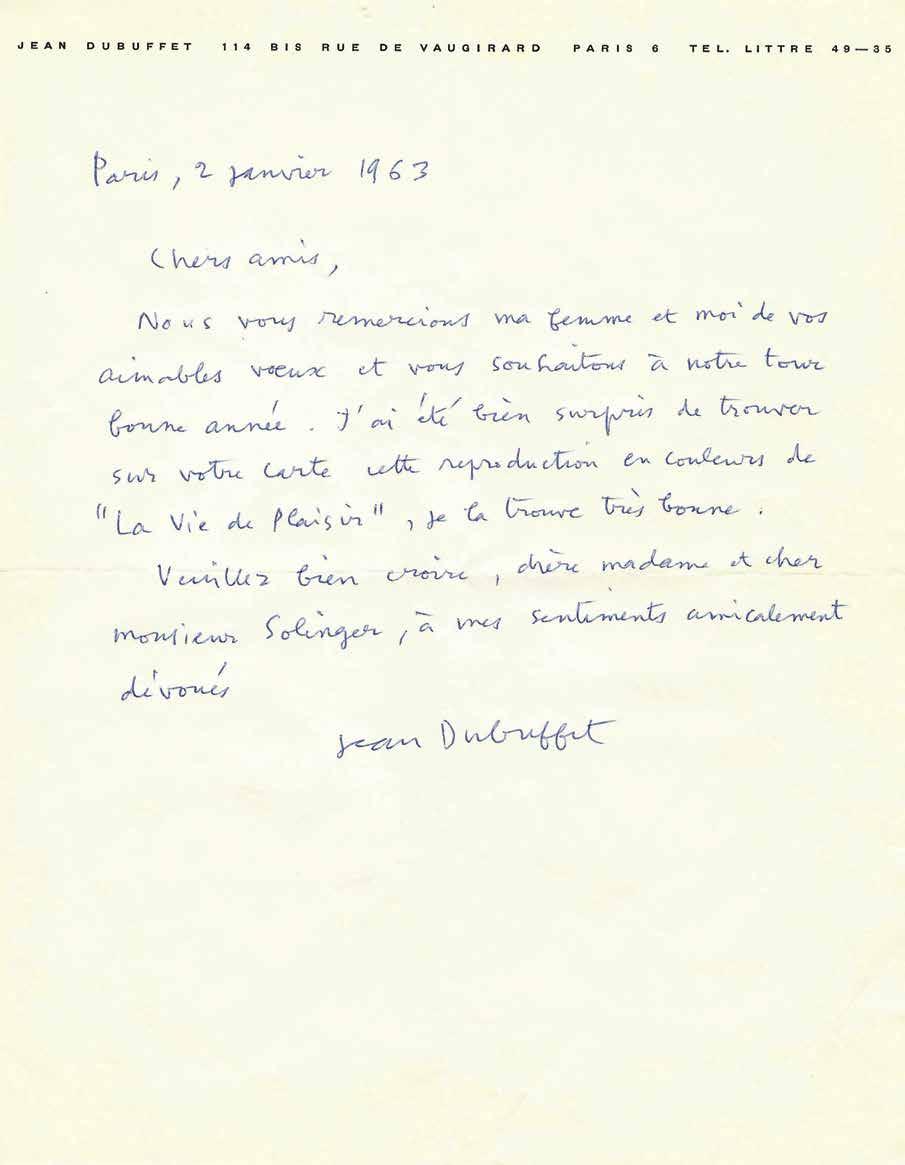 JEAN DUBUFFET 114 BIS RUE DE VAUGIRARD PARIS 6 TEL. LITTRE 49—35
Paris, 2 janvier 1963
Chers amis,
Nous vous remercions ma femme et moi de vos
aimables vœux et vous souhaitons à notre tour
bonne année. J'ai été bien surpris de trouver
sur votre carte cette reproduction en couleurs de
"La Vie de Plaisir", je la trouve très bonne.
Veuillez bien croire, chère madame et cher
monsieur Solinger, à mes sentiments amicalement
dévoués
Jean Dubuffet